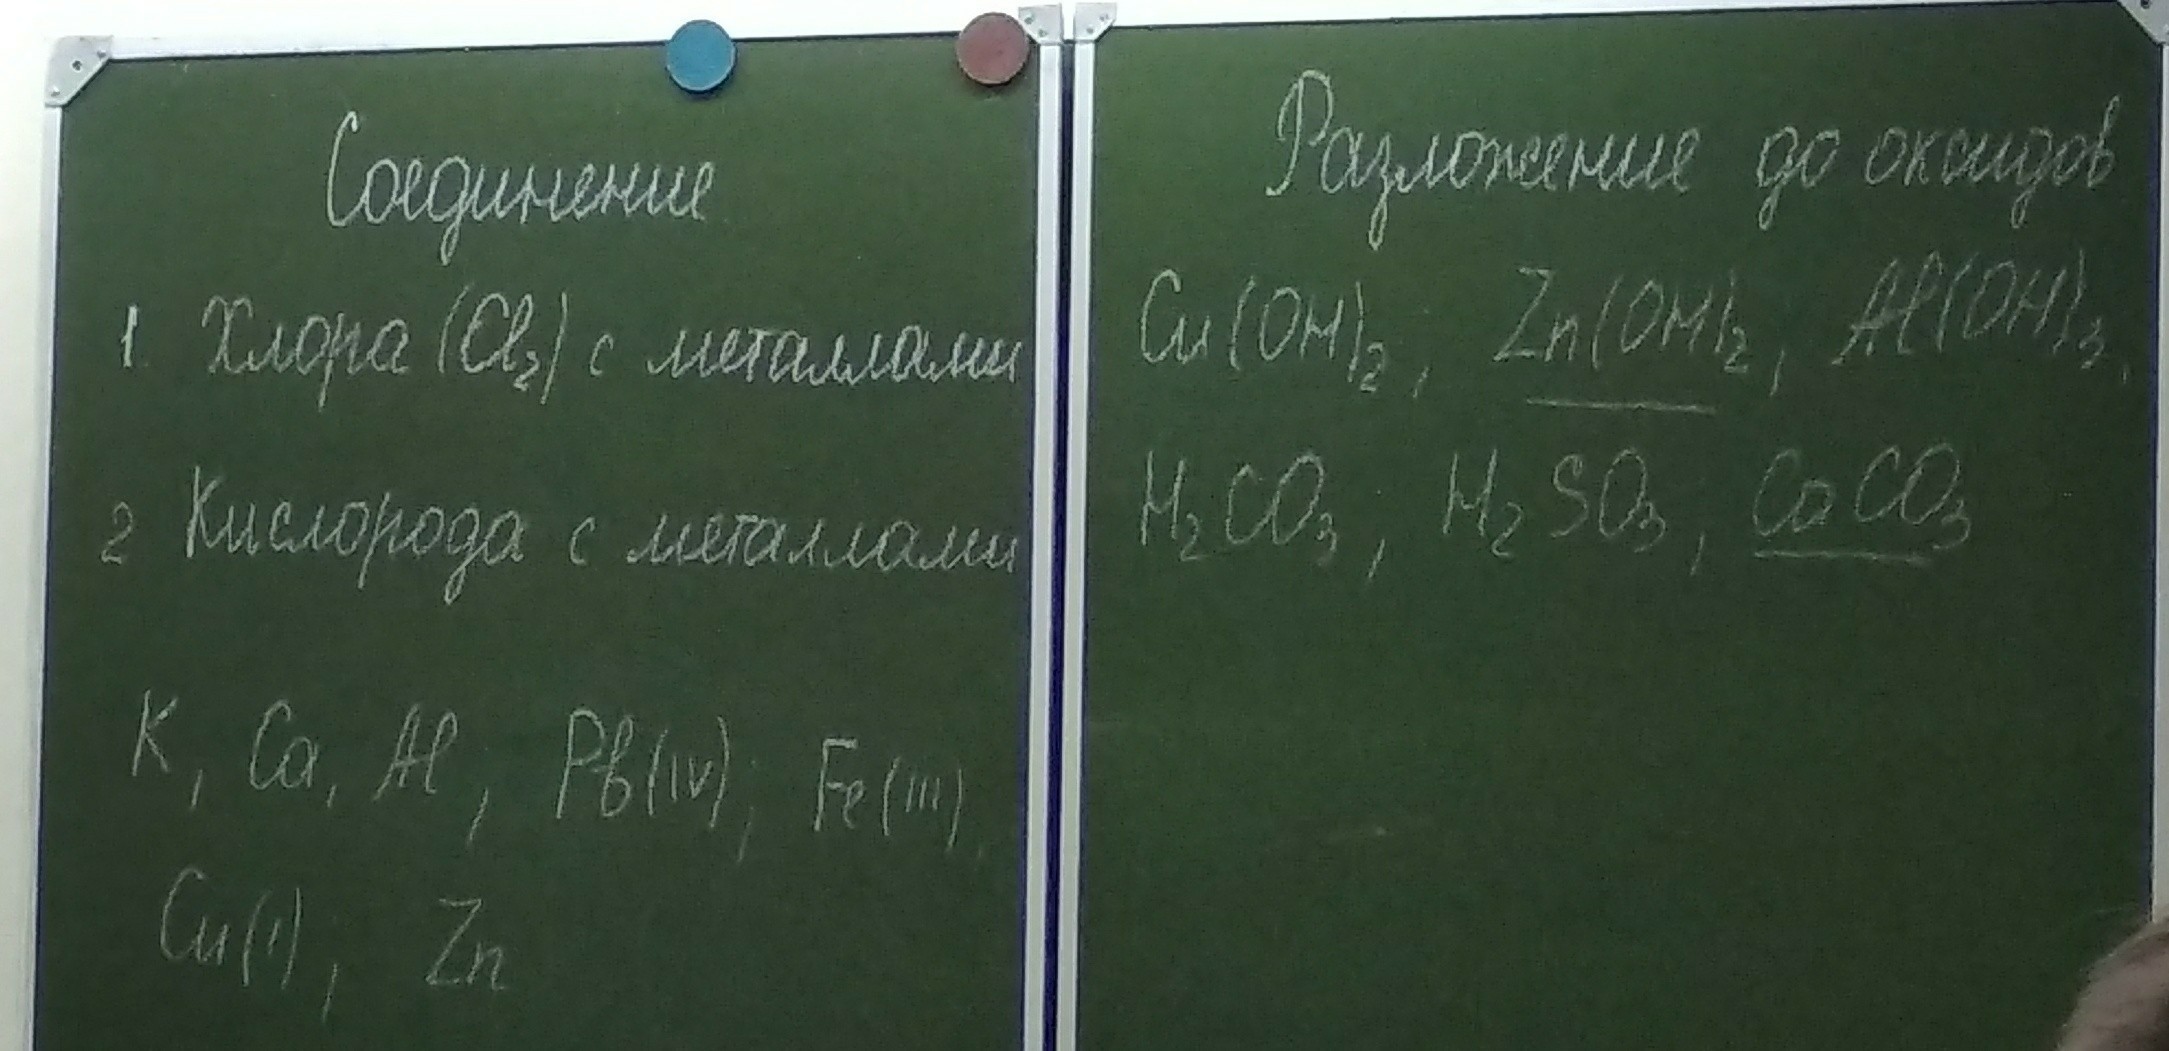 Соединение
1. Хлора (Cl₂) с металлами
2 Кислорода с металлами
K, Ca, Al, Pb(IV), Fe(III),
Cu(I), Zn
Разложение до оксидов
Cu(OH)₂, Zn(OH)₂, Al(OH)₃,
H₂CO₃, H₂SO₃, CaCO₃